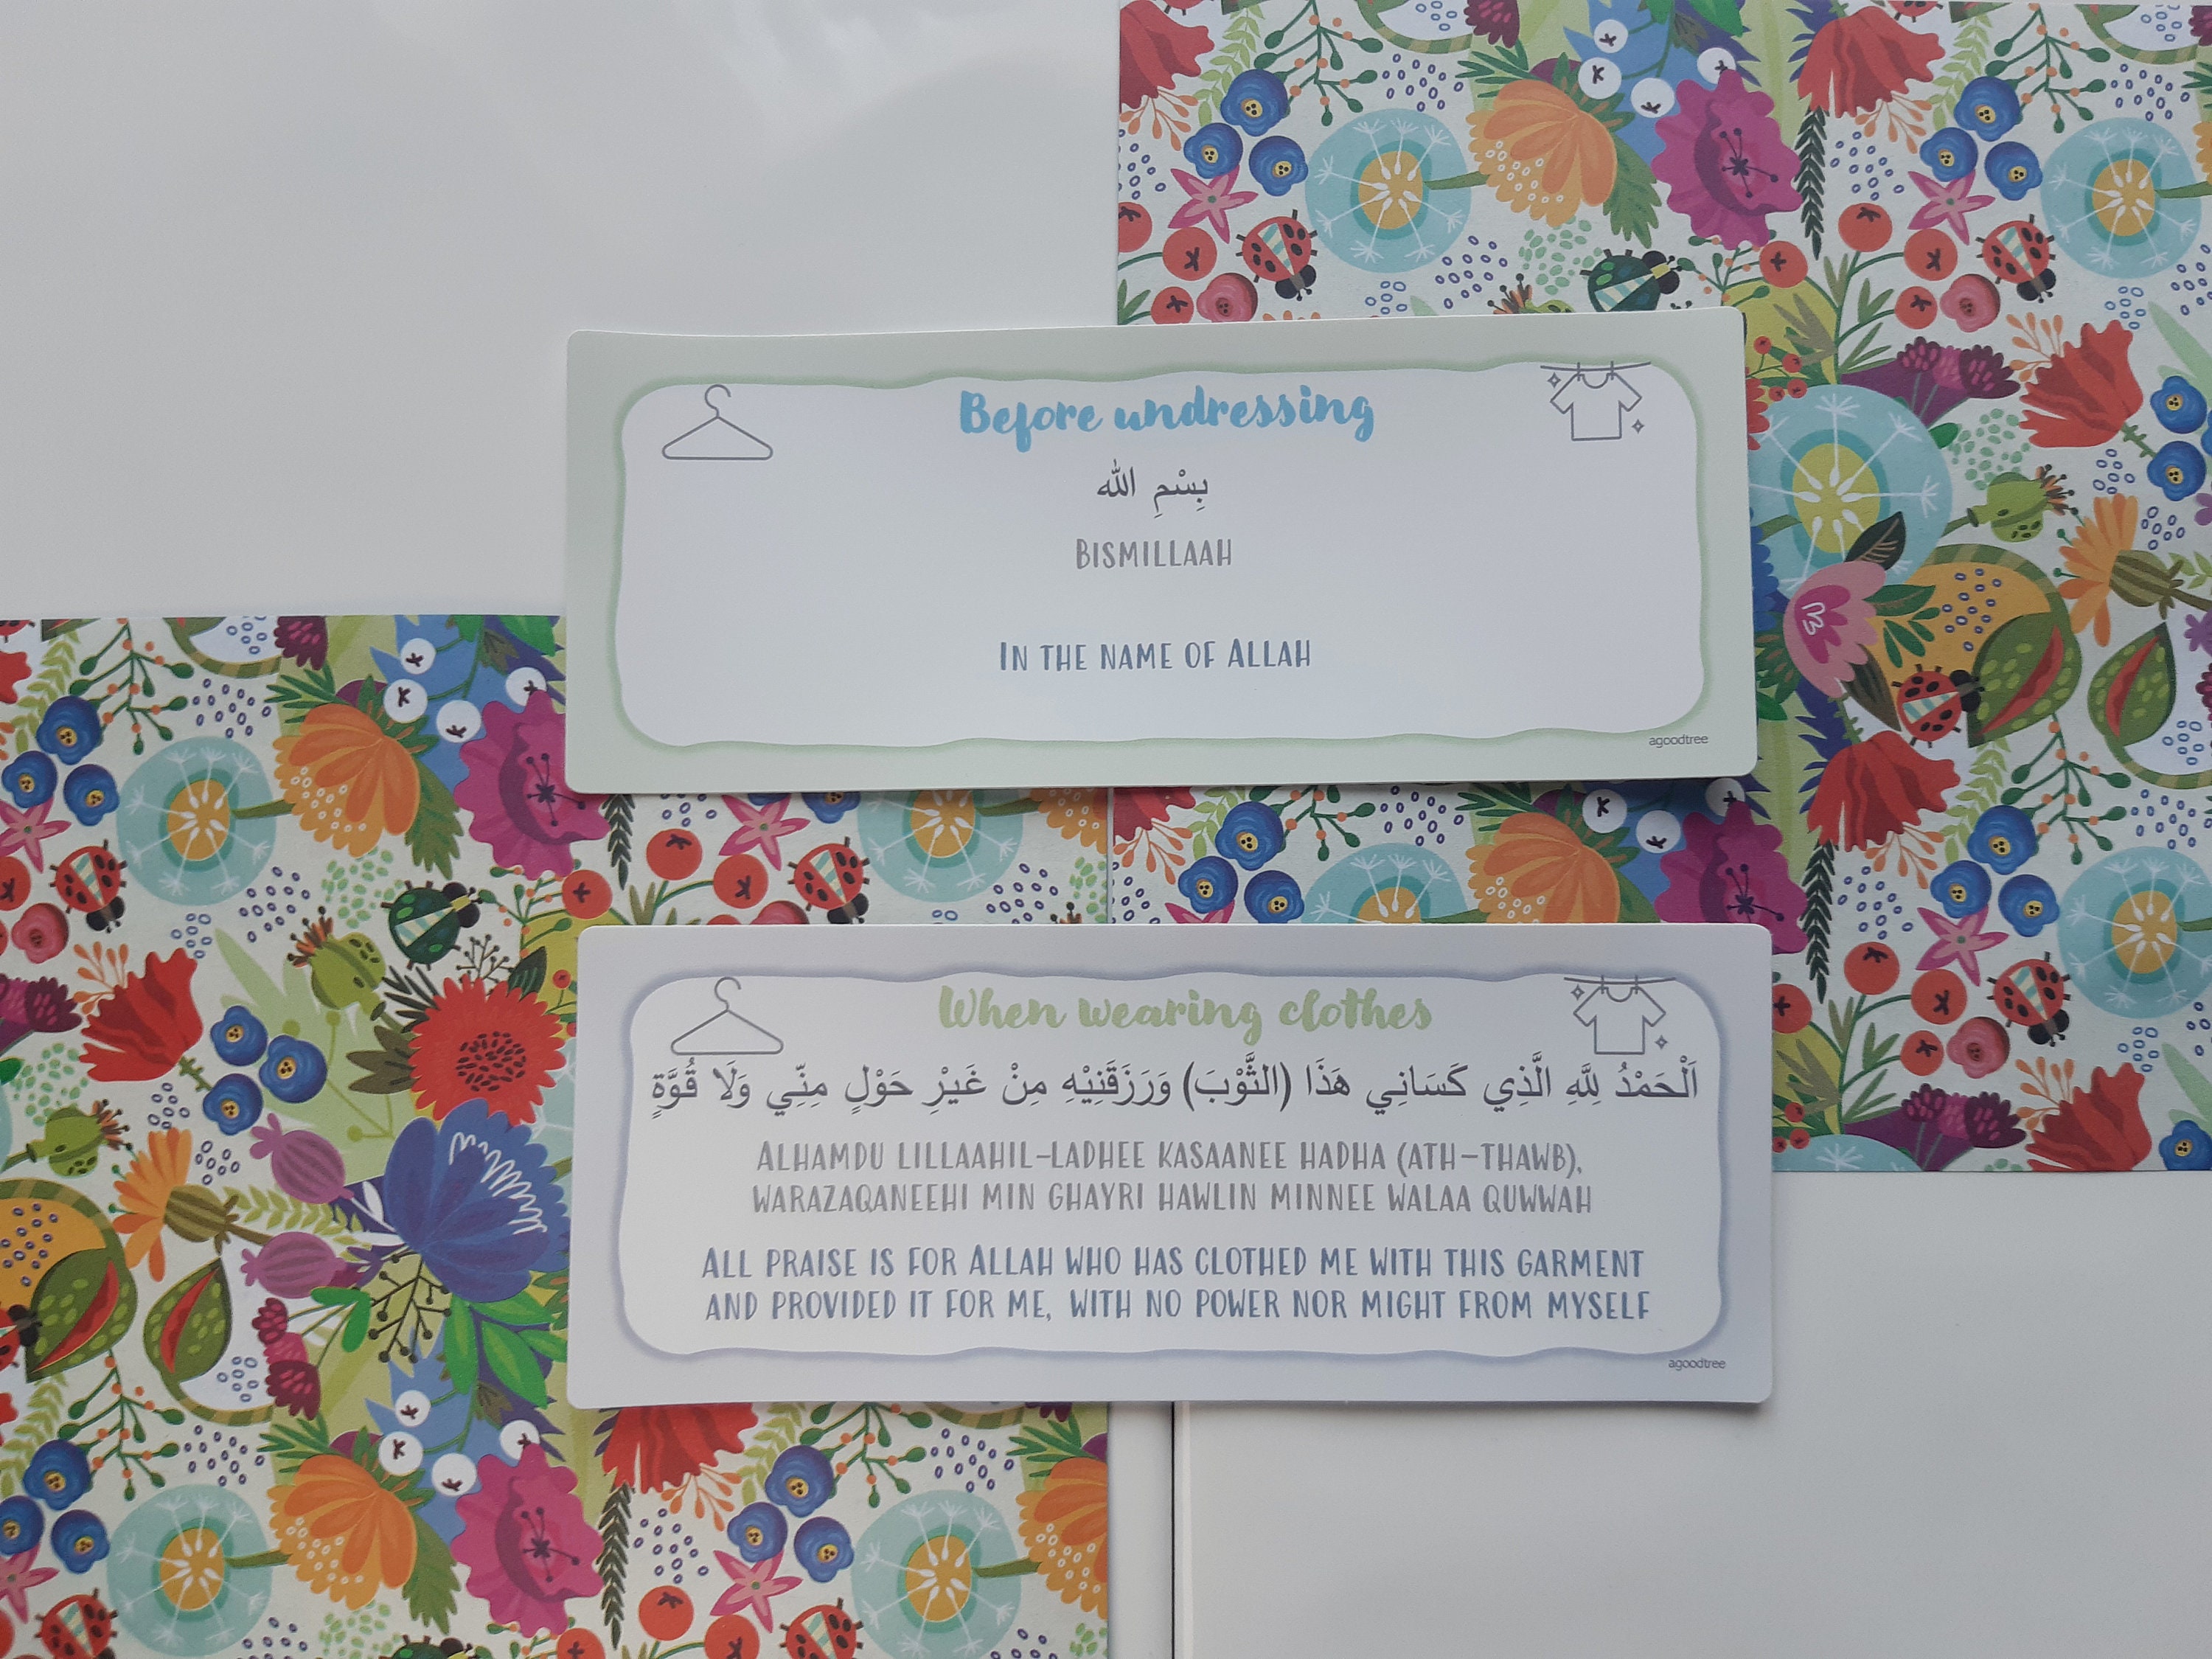 Before undressing
بِسْمِ الله
BISMILLAAH
IN THE NAME OF ALLAH
agoodtree
When wearing clothes
اَلْحَمْدُ لِلَّهِ الَّذِي كَسَانِي هَذَا (الثَّوْبَ) وَرَزَقَنِيْهِ مِنْ غَيْرِ حَوْلٍ مِنِّي وَلَا قُوَّةٍ
ALHAMDU LILLAAHIL-LADHEE KASAANEE HADHA (ATH-THAWB),
WARAZAQANEEHI MIN GHAYRI HAWLIN MINNEE WALAA QUWWAH
ALL PRAISE IS FOR ALLAH WHO HAS CLOTHED ME WITH THIS GARMENT
AND PROVIDED IT FOR ME, WITH NO POWER NOR MIGHT FROM MYSELF
agoodtree